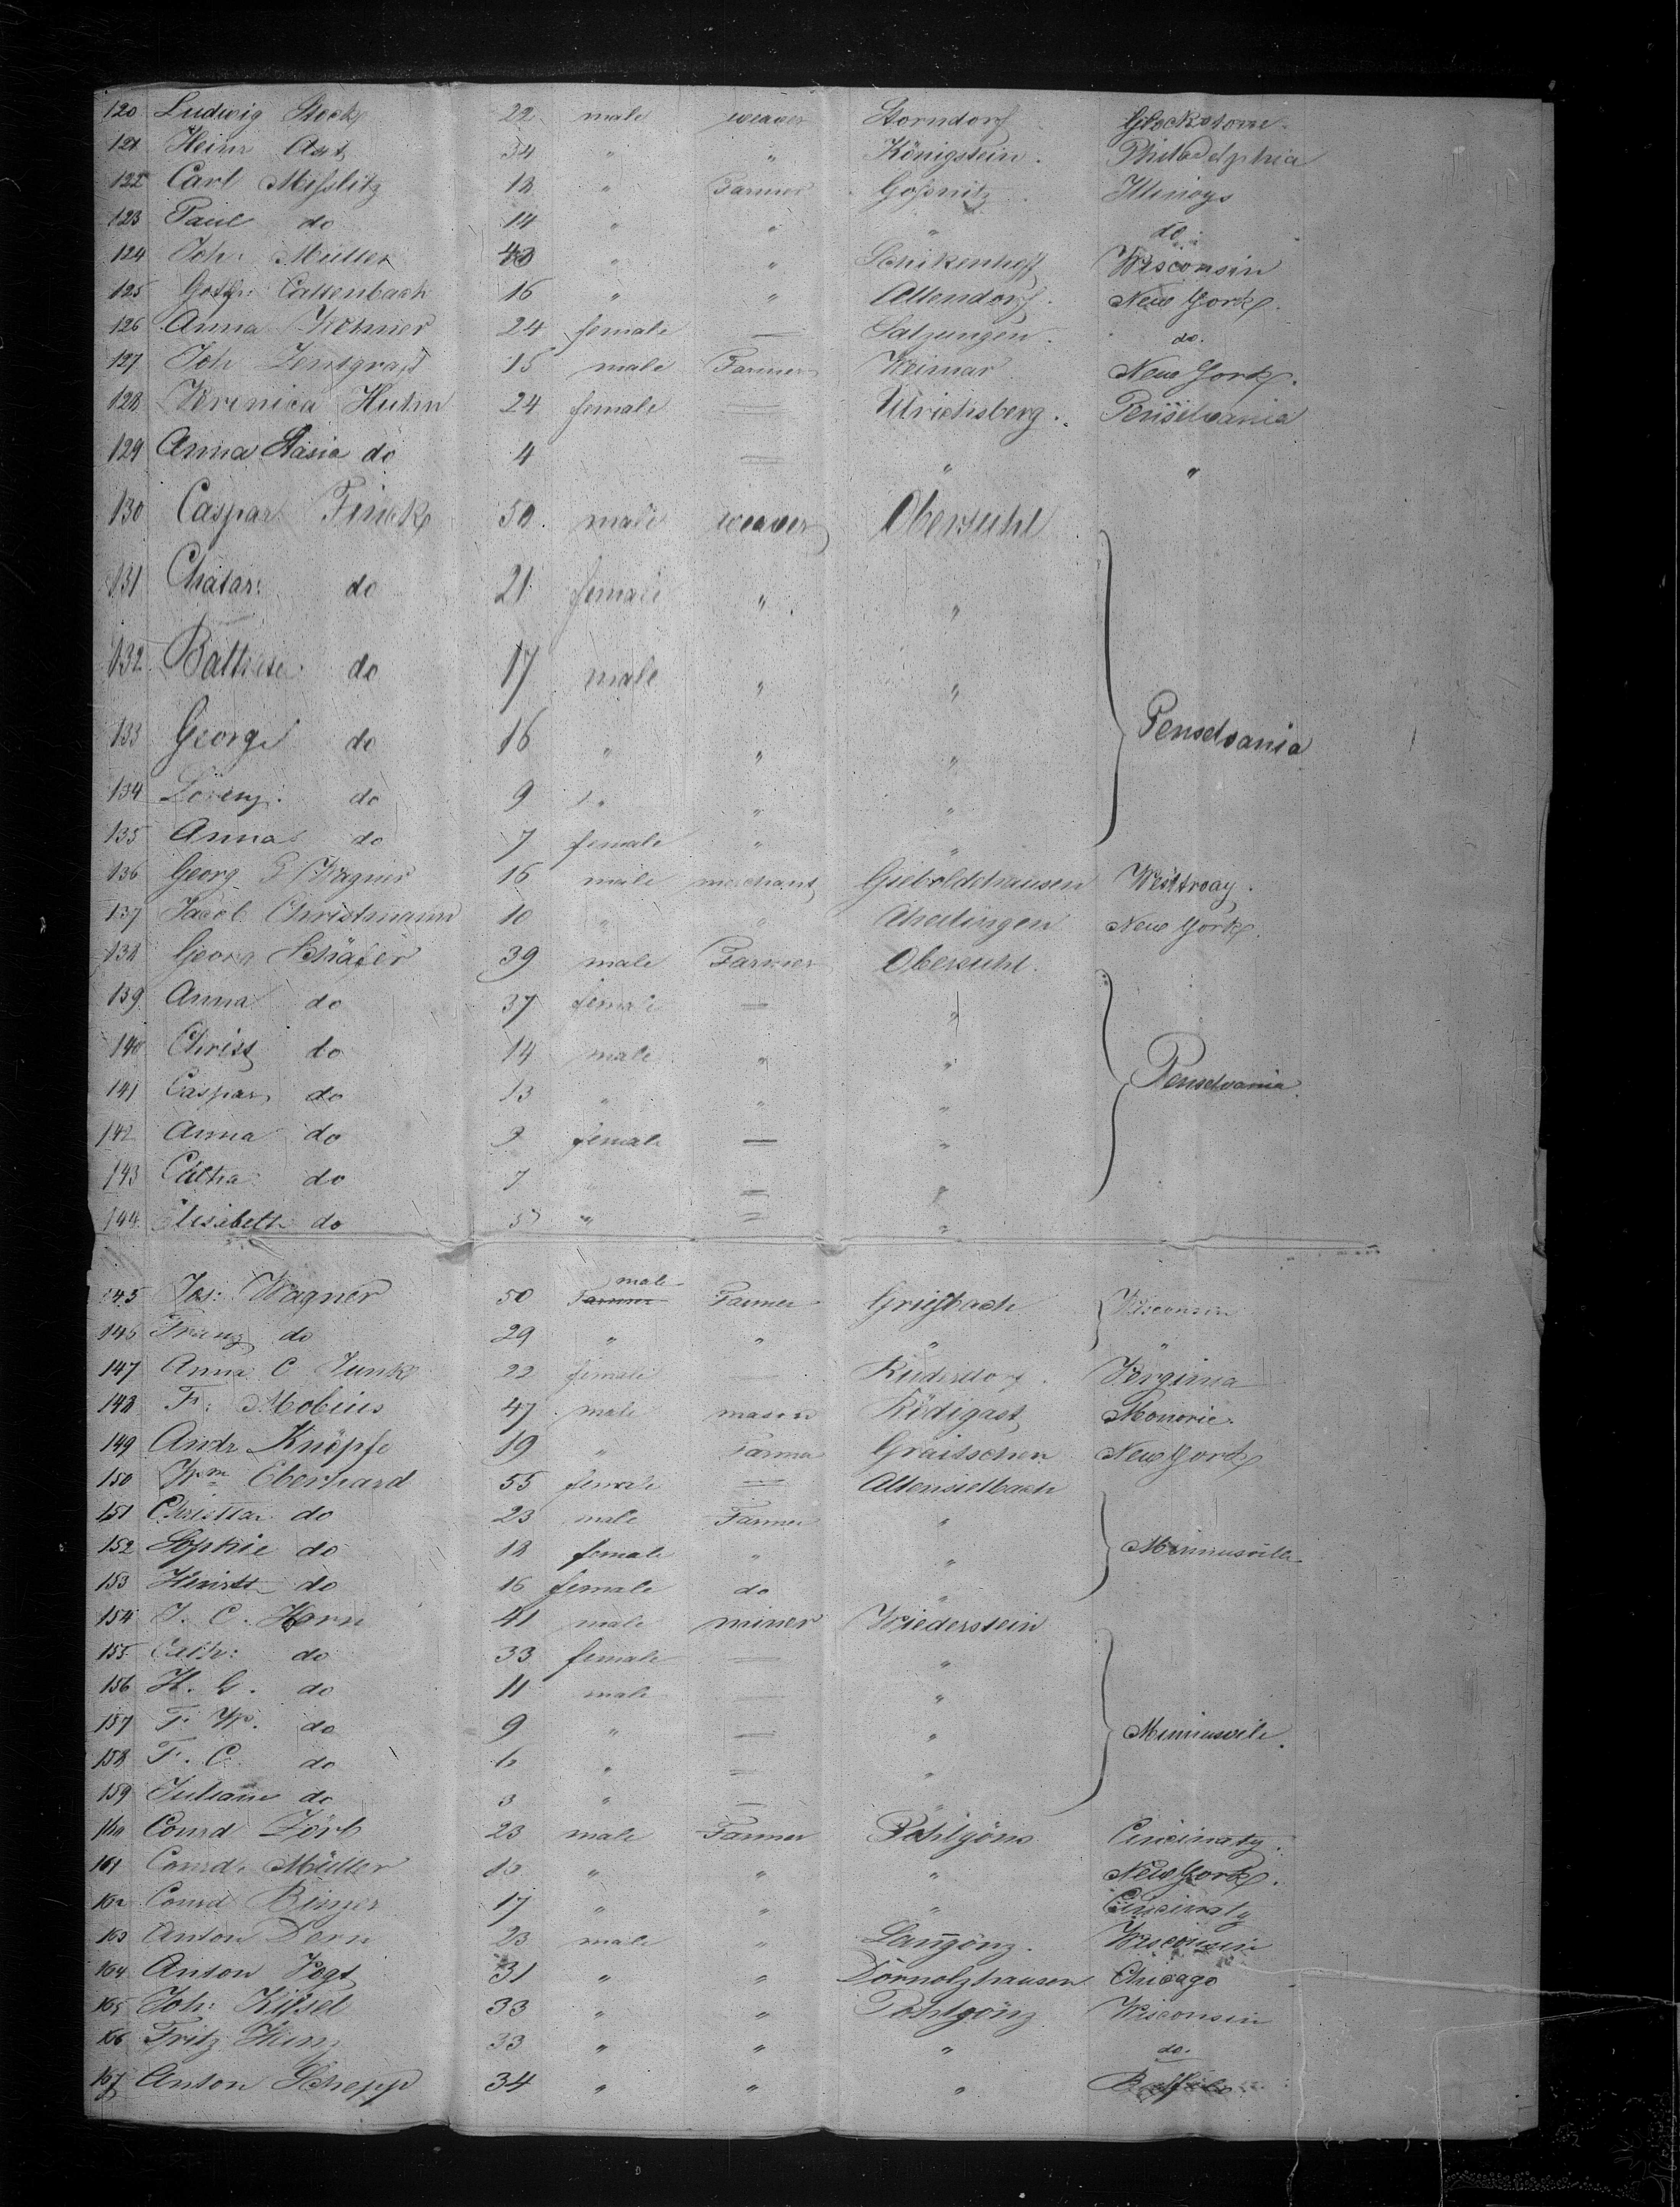 120 Ludwig Stock 22 male weaver Storndorf Glockstone
121 Heinr Ast 34 " " Königstein. Philadelphia
122 Carl Misslitz 18 " Farmer Gossnitz Illinoys
123 Paul do 14 " " " do
124 Joh: Müller 43 " " Wisconsin
125 Gottfr: Caltenbach 16 " " Altendorf. New York.
126 Anna 24 female — Salzungen. do.
127 Joh Zentgraf 15 male Farmer Weimar New York.
128 Veronica Huhn 24 female — Ulrichsberg. Penselvania
129 Anna Stasia do 4 — " "
130 Caspar Finck 50. male weaver Obersuhl
131 Chatar: do 21 female " "
132 Balthaser do 17 male " "
133 George do 16 " " " Penselvania
134 Lorenz: do 9 " " "
135 Anna do 7 female " "
136 Georg P Wagner 16 male merchant Gieboldehausen Westtroay.
137 Jacob Christmann 10 " " New York.
138 Georg Schäfer 39 male Farmer Obersuhl.
139 Anna do 37 female — "
140 Christ do 14 male " "
141 Caspar do 13 " " " Penselvania.
142 Anna do 9 female — "
143 Catha: do 7 " — "
144 Elisabeth do 5 " — "
145 Jos: Wagner 50 male Farmer Griesbach Wisconsin
146 Franz do 29 " " " "
147 Anna C Junk 22 female — Rudersdorf. Verginia
148 F: Mobius 47 male mason Rödigast Monorie.
149 Andr Knöpfe 19 " Farmer Graitschen New York
150 Wm Eberhard 55 female —
151 Christian do 23 male Farmer "
152 Sophie do 18 female " " Minnusville.
153 do 16 female do "
154 J. C. Horn 41 male miner Wiederstein
155 Cath: do 33 female — "
156 H. G. do 11 male — "
157 F. W. do 9 " — " Minnusvile.
158 F. C. do 6 " — "
159 Juliane do 3 " — "
160 Conrd Zörb 23 male Farmer Pohlgöns Cincinaty.
161 Conrd. Müller " " " New York.
162 Conrd Binzer 17 " " " Cincinaty
163 Anton Dern 23 male " Langönz. Wisconsin
164 Anton Vogt 31 " " Dörnolzhausen Chicago
165 Joh: 33 " " Pohlgönz Wisconsin
166 Fritz 33 " " " do.
167 Anton Schepp 34 " " " Buffalo